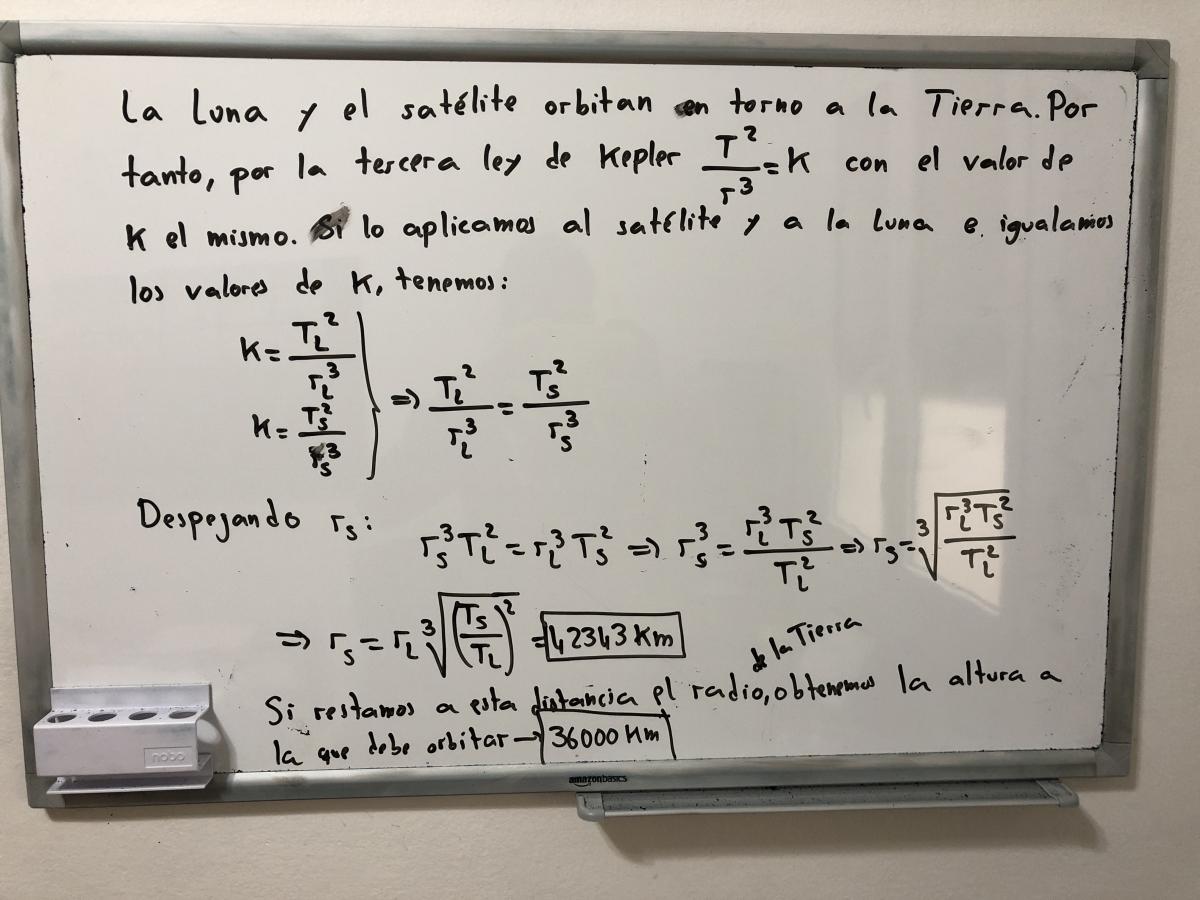 La Luna y el satélite orbitan en torno a la Tierra. Por
tanto, por la tercera ley de Kepler T²/r³ = K con el valor de
K el mismo. Si lo aplicamos al satélite y a la Luna e igualamos
los valores de K, tenemos:
K = T_L²/r_L³
K = T_S²/r_S³
} ⇒ T_L²/r_L³ = T_S²/r_S³
Despejando r_S:
r_S³ T_L² = r_L³ T_S² ⇒ r_S³ = r_L³ T_S²/T_L² ⇒ r_S = ∛(r_L³ T_S²/T_L²)
⇒ r_S = r_L ∛((T_S/T_L)²) = 42343 Km
Si restamos a esta distancia el radio de la Tierra, obtenemos la altura a
la que debe orbitar → 36000 Km
nobo
amazonbasics